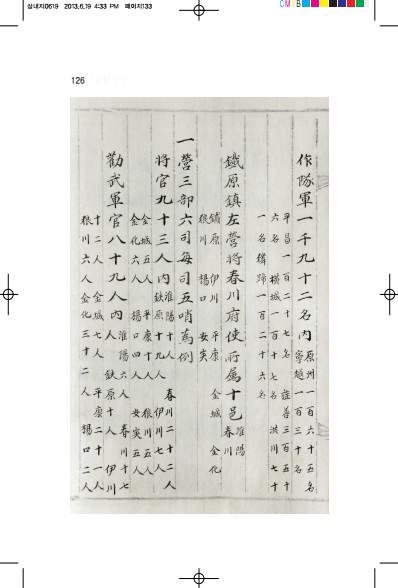 삼내지0619 2013.6.19 4:33 PM 페이지133
126
作隊軍一千九十二名內 原州一百六十五名
寧越一百三十名
平昌一百二十七名 旌善三百五十
六名 橫城一百十七名 洪川七十
一名 麟蹄一百二十六名
鐵原鎭左營將春川府使所屬十邑 淮陽
春川
鐵原 伊川 平康 金城 金化
狼川 楊口 安峽
一營三部六司每司五哨爲例
將官九十三人內 淮陽十人 春川二十二人
鉄原十九人 伊川七人
金城五人 平康十四人 狼川五人
金化六人 楊口四人 安峽五人
勸武軍官八十九人內 淮陽六人 春川十七
鉄原十人 伊川
十二人 金城七人 平康二十一人
狼川六人 金化三十二人 楊口二人